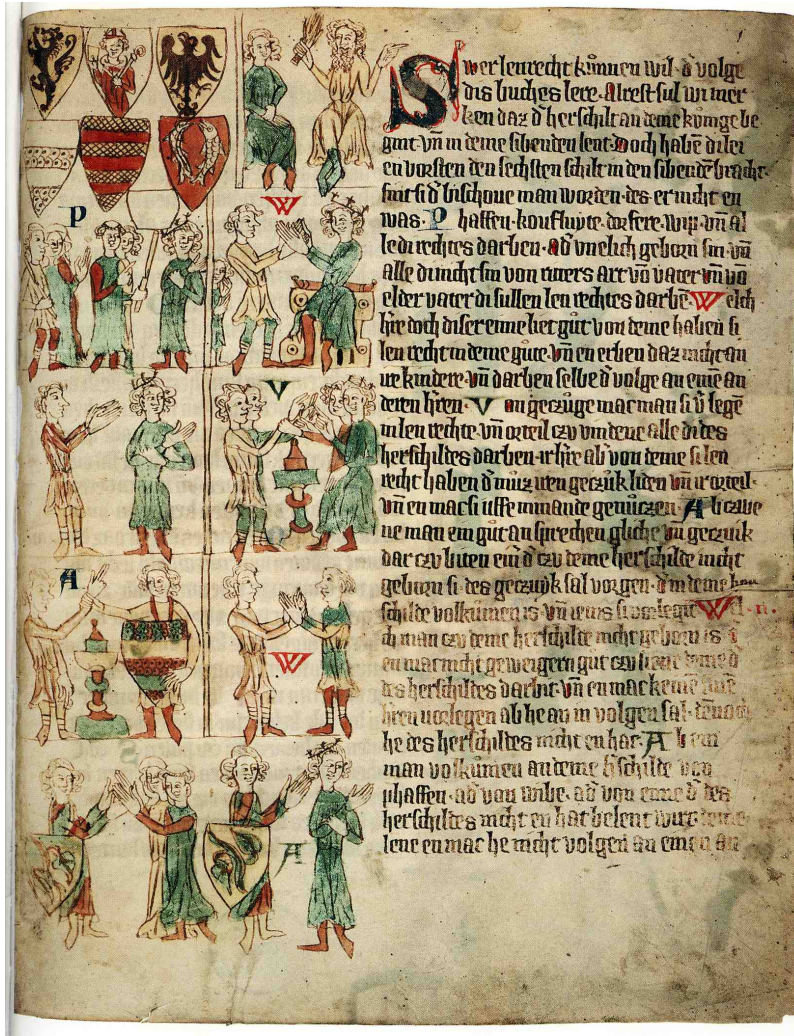 Swer lenrecht künnen wil· d' volge
dis buches lere· Alrest sul wi mer
ken daz d' herschilt an deme kůnige be
gint· vn̄ in deme sibenden lent· Doch habē di lei
en vorsten den sechsten schilt in den sibendē bracht·
sint si d' bischoue man worden· des er nicht en
was· Phaffen· koufluyte· dorfere· wip· vn̄ al
le di rechtes darben· ad' vnelich geborn sin· vn̄
alle di nicht sin von ritters art vō vater vn̄ vō
elder vater di sullen len rechtes darbē· Welch
h're doch diser eime liet gůt von deme haben si
len recht in deme gute· vn̄ en erben daz nicht an
ire kindere· vn̄ darben selbe d' volge an eīme an
deren h'ren· Von geczůge mac man si v'legē
in len rechte· vn̄ orteil czu vindene alle di des
herschildes darben· ir h're ab' von deme si len
recht haben d' můz iren geczůk liden vn̄ ir orteil·
vn̄ en mac si uffe nimande genüczen· Ab czwe
ne man ein gůt an sprechen gliche vn̄ geczuk
dar czu biten ein d' czu deme herschilde nicht
geborn si· des geczuyk sal vorgen· d' in deme her
schilde volkůmen is· vn̄ ienis si vorlegit
ch man czu deme herschilde nicht geborn is
en mac nicht geweigern gut czu
des herschildes darbit· vn̄ en mac keine
h'ren uorlegen ab he an in volgen sal·
he des herschildes nicht en hat· Ab ein
man volkůmen an deme h'schilde von
phaffen· ad' von wibe· ad' von eime d' des
herschildes nicht en hat belent wirt·
lene en mac he nicht volgen an einen an
P
W
V
A
W
A